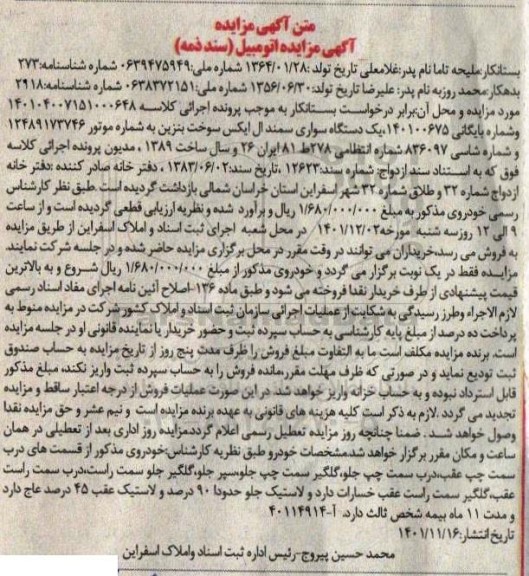 متن آگهی مزایده
آگهی مزایده اتومبیل (سند ذمه)
بستانکار:ملیحه تاما نام پدر:غلامعلی تاریخ تولد :۱۳۶۴/۰۱/۲۸ شماره ملی:۰۶۳۹۴۷۵۹۴۹ شماره شناسنامه:۲۷۳
بدهکار:محمد روزبه نام پدر: علیرضا تاریخ تولد:۱۳۵۶/۰۶/۳۰ شماره ملی:۰۶۳۸۳۷۲۱۵۱ شماره شناسنامه:۲۹۱۸
مورد مزایده و محل آن:برابر درخواست بستانکار به موجب پرونده اجرائی کلاسه ۱۴۰۱۰۴۰۰۷۱۵۱۰۰۰۶۴۸
وشماره بایگانی ۱۴۰۱۰۰۶۷۵،یک دستگاه سواری سمند ال ایکس سوخت بنزین به شماره موتور ۱۲۴۸۹۱۷۳۷۴۶
و شماره شاسی ۸۳۶۰۹۷ شماره انتظامی ۲۷۸ط ۸۱ ایران ۲۶ و سال ساخت ۱۳۸۹ ، مدیون پرونده اجرائی کلاسه
فوق که به استناد سند ازدواج: شماره سند:۱۲۶۲۳ ،تاریخ سند:۱۳۸۳/۰۶/۰۲ ، دفتر خانه صادر کننده :دفتر خانه
ازدواج شماره ۳۲ و طلاق شماره ۳۲ شهر اسفراین استان خراسان شمالی بازداشت گردیده است .طبق نظر کارشناس
رسمی خودروی مذکور به مبلغ ۱/۶۸۰/۰۰۰/۰۰۰ ریال و برآورد شده و نظریه ارزیابی قطعی گردیده است و از ساعت
۹ الی ۱۲ روز سه شنبه مورخه ۱۴۰۱/۱۲/۰۲ در محل شعبه اجرای ثبت اسناد و املاک اسفراین از طریق مزایده
به فروش می رسد،خریداران می توانند در وقت مقرر در محل برگزاری مزایده حاضر شده و در جلسه شرکت نمایند.
مزایده فقط در یک نوبت برگزار می گردد و خودروی مذکور از مبلغ ۱/۶۸۰/۰۰۰/۰۰۰ ریال شروع و به بالاترین
قیمت پیشنهادی از طرف خریدار نقدا فروخته می شود و طبق ماده ۱۳۶- اصلاح آئین نامه اجرای مفاد اسناد رسمی
لازم الاجراء وطرز رسیدگی به شکایت از عملیات اجرائی سازمان ثبت اسناد و املاک کشور شرکت در مزایده منوط به
پرداخت ده درصد از مبلغ پایه کارشناسی به حساب سپرده ثبت و حضور خریدار یا نماینده قانونی او در جلسه مزایده
است. برنده مزایده مکلف است ما به التفاوت مبلغ فروش را ظرف مدت پنج روز از تاریخ مزایده به حساب صندوق
ثبت تودیع نماید و در صورتی که ظرف مهلت مقرر،مانده فروش را به حساب سپرده ثبت واریز نکند، مبلغ مذکور
قابل استرداد نبوده و به حساب خزانه واریز خواهد شد. در این صورت عملیات فروش از درجه اعتبار ساقط و مزایده
تجدید می گردد .لازم به ذکر است کلیه هزینه های قانونی به عهده برنده مزایده است و نیم عشر و حق مزایده نقدا
وصول خواهد شد . ضمنا چنانچه روز مزایده تعطیل رسمی اعلام گردد،مزایده روز اداری بعد از تعطیلی در همان
ساعت و مکان مقرر برگزار خواهد شد.مشخصات خودرو طبق نظریه کارشناس:خودروی مذکور از قسمت های درب
سمت چپ عقب،درب سمت چپ جلو،گلگیر سمت چپ جلو،سپر جلو،گلگیر جلو سمت راست،درب سمت راست
عقب،گلگیر سمت راست عقب خسارات دارد و لاستیک جلو حدودا ۹۰ درصد و لاستیک عقب ۴۵ درصد عاج دارد
و مدت ۱۱ ماه بیمه شخص ثالث دارد. آ-۴۰۱۱۴۹۱۴
تاریخ انتشار:۱۴۰۱/۱۱/۱۶
محمد حسین پیروج-رئیس اداره ثبت اسناد واملاک اسفراین